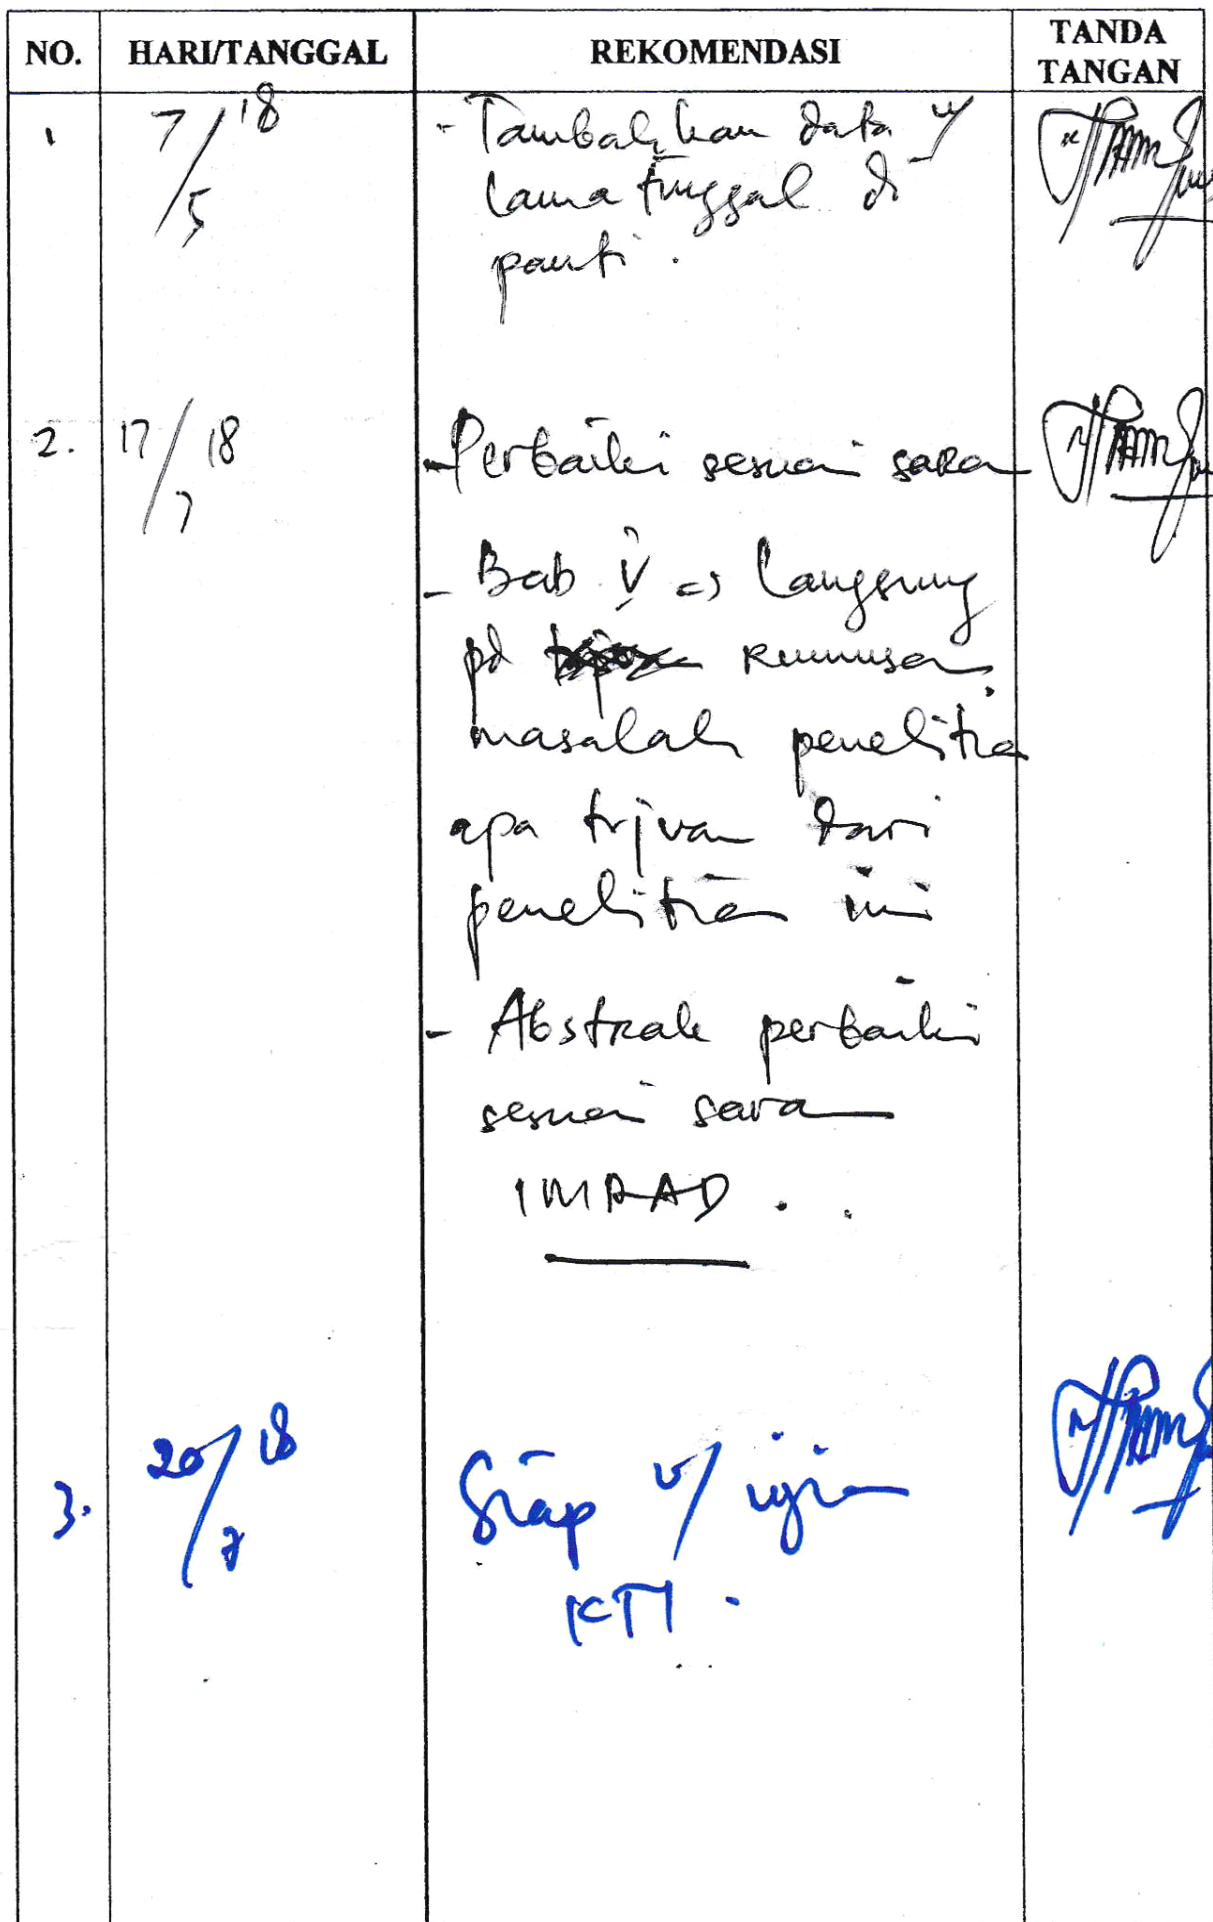 NO. HARI/TANGGAL REKOMENDASI TANDA TANGAN
1 7/5 18 - Tambahkan data u/
lama tinggal di
panti .
2. 17/7 18 - Perbaiki sesuai saran
- Bab V => langsung
pd rumusan
masalah penelitian
apa tujuan dari
penelitian ini
- Abstrak perbaiki
sesuai saran
IMRAD .
3. 20/7 18 Siap u/ ujian
KTI .